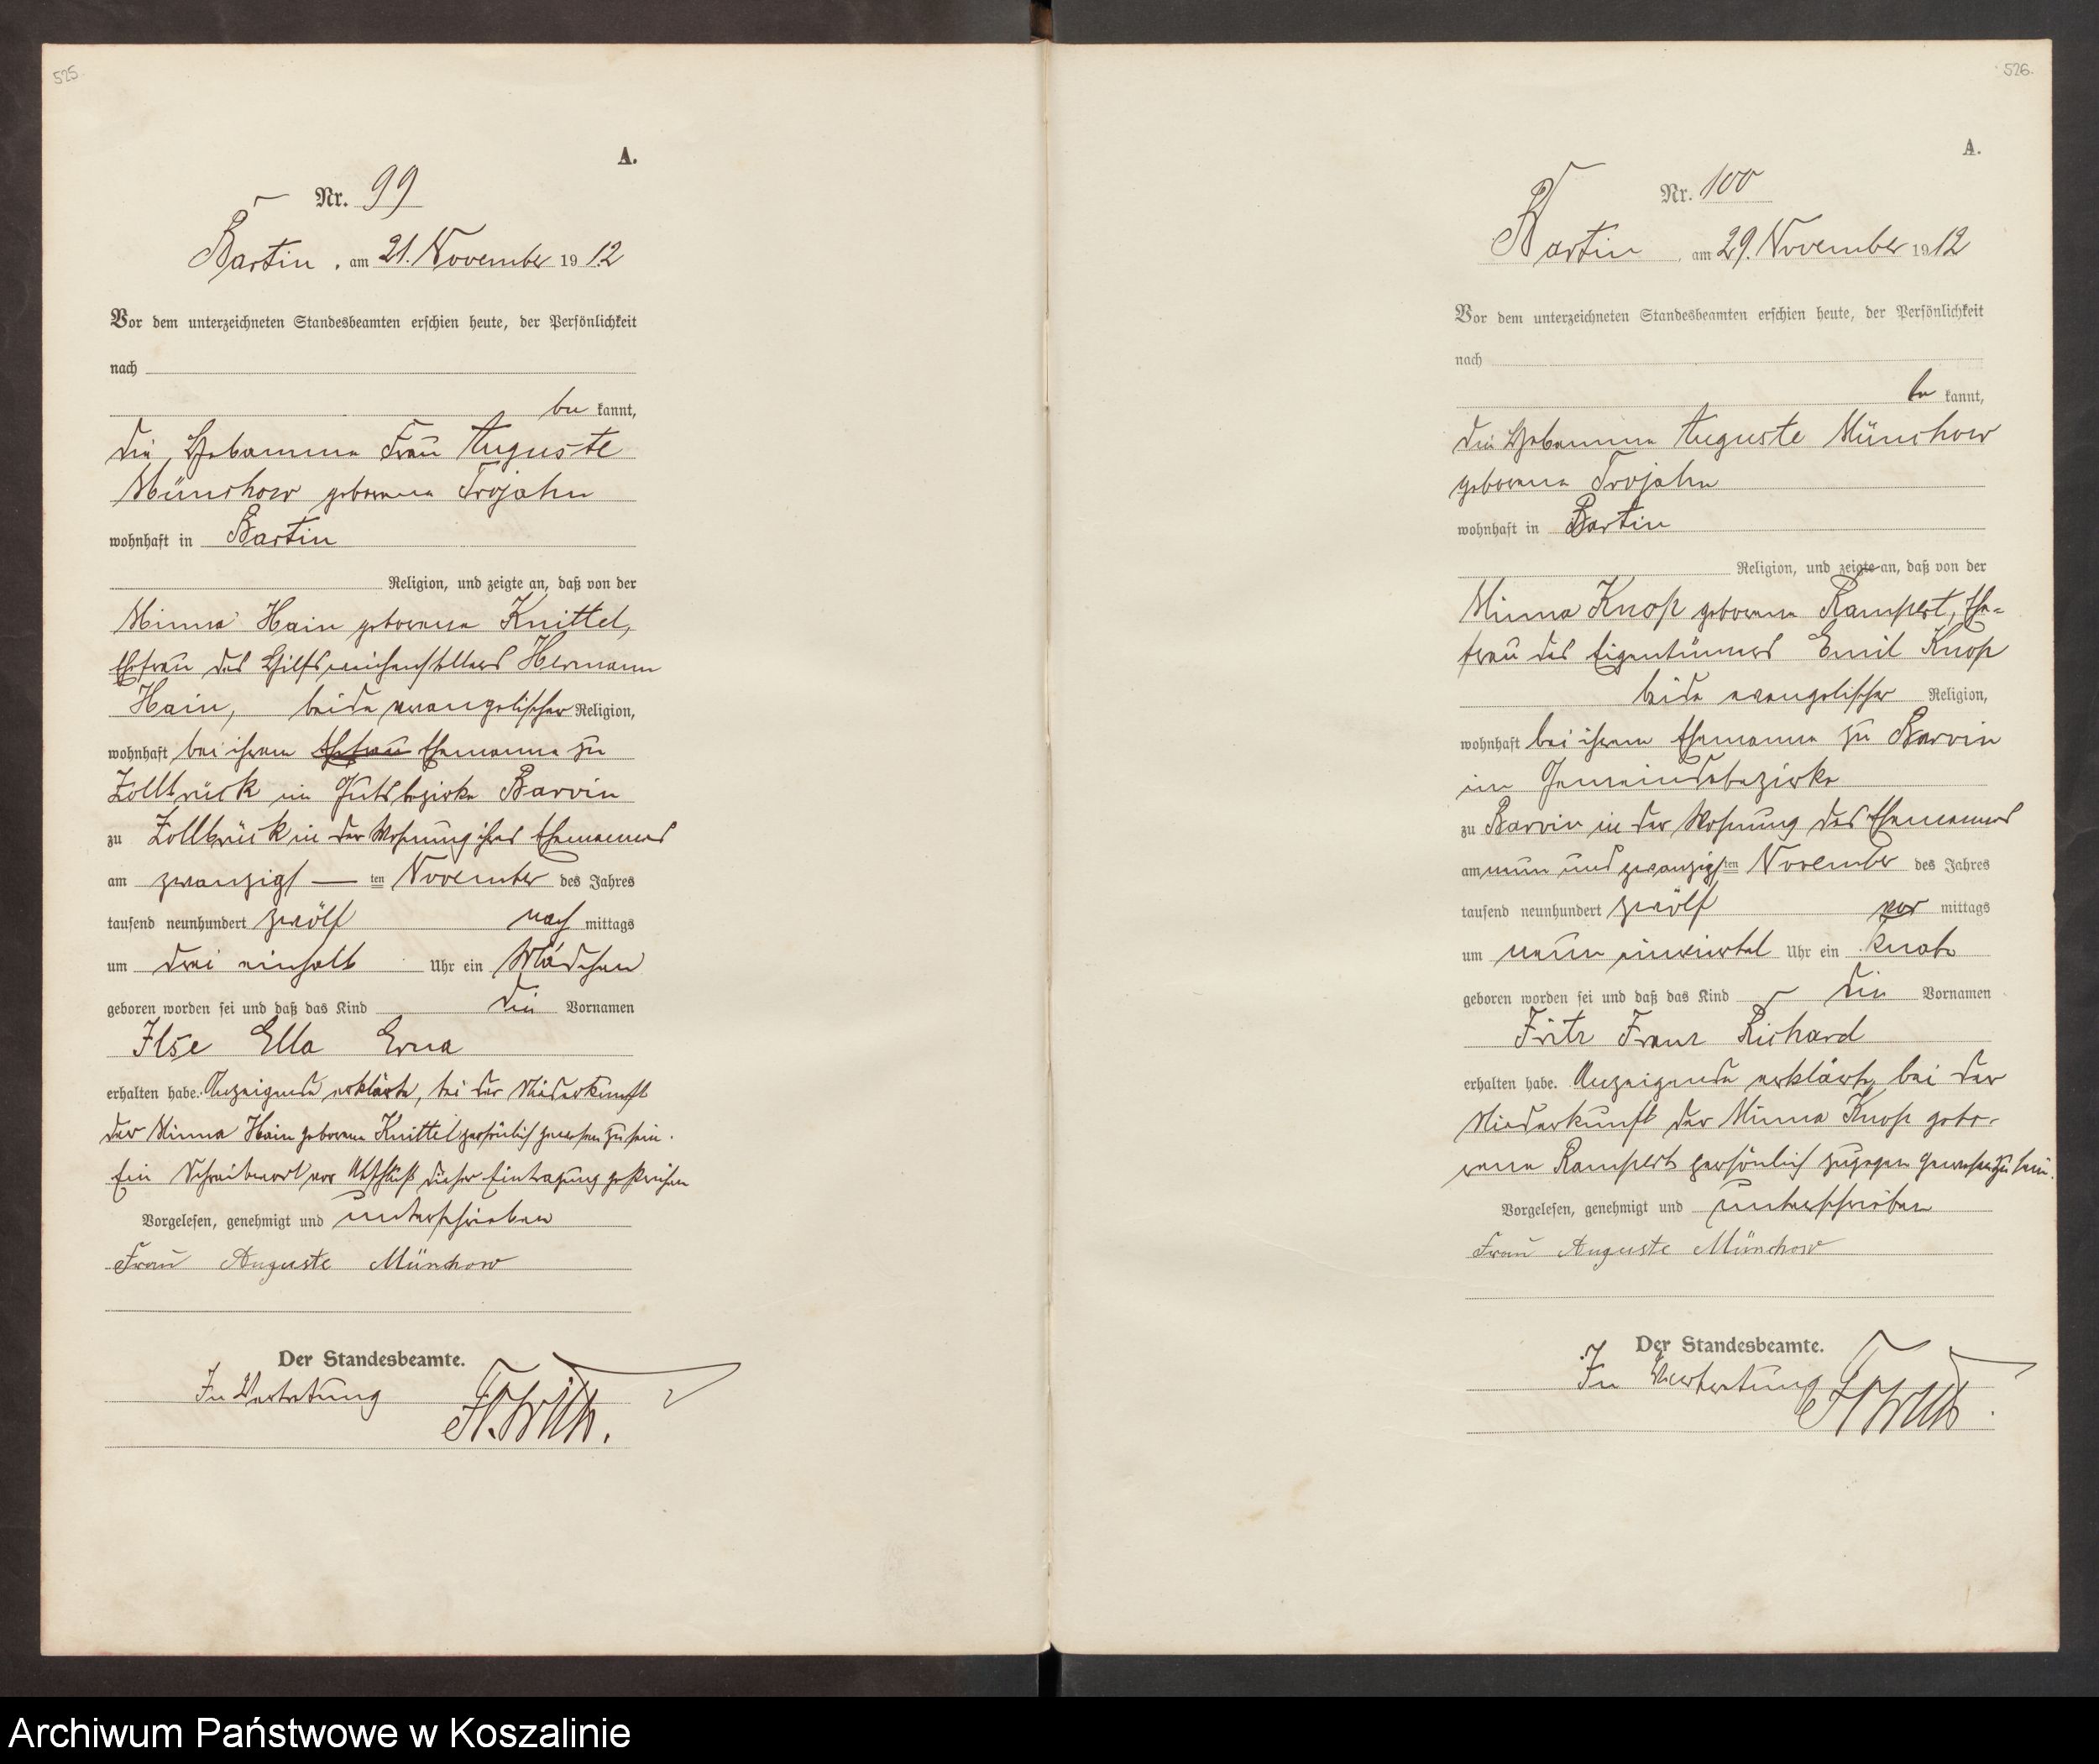 525.
A.
Nr. 99
Bartin, am 21. November 1912
Vor dem unterzeichneten Standesbeamten erschien heute, der Persönlichkeit
nach
be kannt,
die Hebamme Frau Auguste
Münchow geborene Trojahn
wohnhaft in Bartin
Religion, und zeigte an, daß von der
Minna Hain geborene Knittel,
Ehefrau des Hilfsweichenstellers Hermann
Hain, beide evangelischer Religion,
wohnhaft bei ihrem Ehefrau Ehemanne zu
Zollbrück im Gutsbezirke Barvin
zu Zollbrück in der Wohnung ihres Ehemannes
am zwanzigs — ten November des Jahres
tausend neunhundert zwölf nach mittags
um drei einhalb Uhr ein Mädchen
geboren worden sei und daß das Kind die Vornamen
Ilse Ella Erna
erhalten habe. Anzeigende erklärte, bei der Niederkunft
der Minna Hain geborene Knittel persönlich gewesen zu sein.
Ein Schreibwort vor Abschluß dieser Eintragung gestrichen
Vorgelesen, genehmigt und unterschrieben
Frau Auguste Münchow
Der Standesbeamte.
In Vertretung
526.
A.
Nr. 100
Bartin, am 29. November 1912
Vor dem unterzeichneten Standesbeamten erschien heute, der Persönlichkeit
nach
be kannt,
die Hebamme Auguste Münchow
geborene Trojahn
wohnhaft in Bartin
Religion, und zeigte an, daß von der
Minna Knop geborene Rampert, Ehe=
frau des Eigentümers Emil Knop
beide evangelischer Religion,
wohnhaft bei ihrem Ehemanne zu Barvin
im Gemeindebezirke
zu Barvin in der Wohnung des Ehemannes
am neun und zwanzigs ten November des Jahres
tausend neunhundert zwölf vor mittags
um neun einviertel Uhr ein Knabe
geboren worden sei und daß das Kind die Vornamen
Fritz Franz Richard
erhalten habe. Anzeigende erklärte, bei der
Niederkunft der Minna Knop gebo-
rene Rampert persönlich zugegen gewesen zu sein.
Vorgelesen, genehmigt und unterschrieben
Frau Auguste Münchow
Der Standesbeamte.
In Vertretung
Archiwum Państwowe w Koszalinie